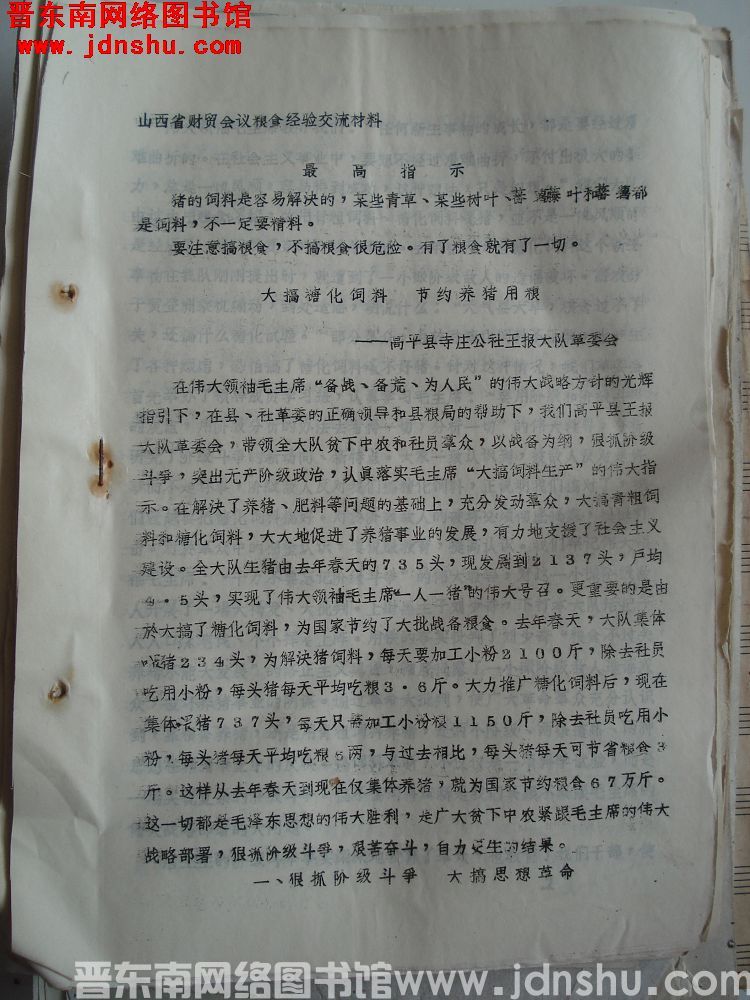 晋东南网络图书馆
www.jdnshu.com
山西省财贸会议粮食经验交流材料
最高指示
猪的饲料是容易解决的，某些青草、某些树叶、蕃薯藤叶和蕃薯都
是饲料，不一定要精料。
要注意搞粮食，不搞粮食很危险。有了粮食就有了一切。
大搞糖化饲料 节约养猪用粮
——高平县寺庄公社王报大队革委会
在伟大领袖毛主席“备战、备荒、为人民”的伟大战略方针的光辉
指引下，在县、社革委的正确领导和县粮局的帮助下，我们高平县王报
大队革委会，带领全大队贫下中农和社员羣众，以战备为纲，狠抓阶级
斗爭，突出无产阶级政治，认眞落实毛主席“大搞饲料生产”的伟大指
示。在解决了养猪、肥料等问题的基础上，充分发动羣众，大搞青粗饲
料和糖化饲料，大大地促进了养猪事业的发展，有力地支援了社会主义
建设。全大队生猪由去年春天的735头，现发展到2137头，戸均
4·5头，实现了伟大领袖毛主席“一人一猪”的伟大号召。更重要的是由
於大搞了糖化饲料，为国家节约了大批战备粮食。去年春天，大队集体
喂猪234头，为解决猪饲料，每天要加工小粉2100斤，除去社员
吃用小粉，每头猪每天平均吃粮3·6斤。大力推广糖化饲料后，现在
集体喂猪737头，每天只需加工小粉粮1150斤，除去社员吃用小
粉，每头猪每天平均吃粮6两，与过去相比，每头猪每天可节省粮食3
斤。这样从去年春天到现在仅集体养猪，就为国家节约粮食67万斤。
这一切都是毛泽东思想的伟大胜利，是广大贫下中农紧跟毛主席的伟大
战略部署，狠抓阶级斗爭，艰苦奋斗，自力更生的结果。
一、狠抓阶级斗爭 大搞思想革命
晋东南网络图书馆 www.jdnshu.com